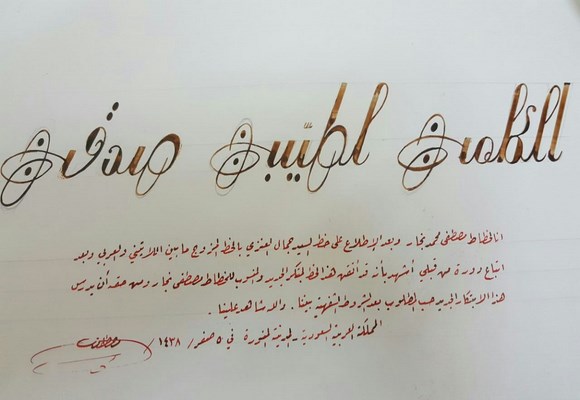 الكلمة الطيبة صدقة
انا الخطاط مصطفى محمد نجار وبعد الإطلاع على خط السيد جمال العنزي بالخط المزوج مابين اللاتيني والعربي وبعد
اتباع دورة من قبلي أشهد بأنه قد أتقن هذا الخط المبتكر الجديد والمنسوب للخطاط مصطفى نجار ومن حقه أن يدرس
هذا الابتكار الجديد حسب المطلوب بعد الشروط الشفهية بيننا . والله شاهد علينا .
المملكة العربية السعودية - المدينة المنورة في ٥ صفر / ١٤٣٨